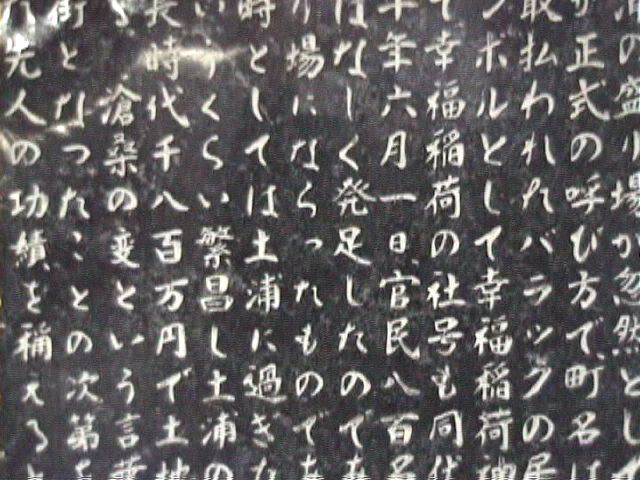 の盛り場が忽然とし
が正式の呼び方で町名は
取払われたバラックの居
ンボルとして幸福稲荷神
て幸福稲荷の社号も同代
十年六月一日官民八百名
はなしく発足したのであ
り場にならったものであ
時としては土浦に過ぎた
いうくらい繁昌し土浦の
長時代千八百万円で土地
る滄桑の変という言葉
街となったことの次第を
八先人の功績を稱えると